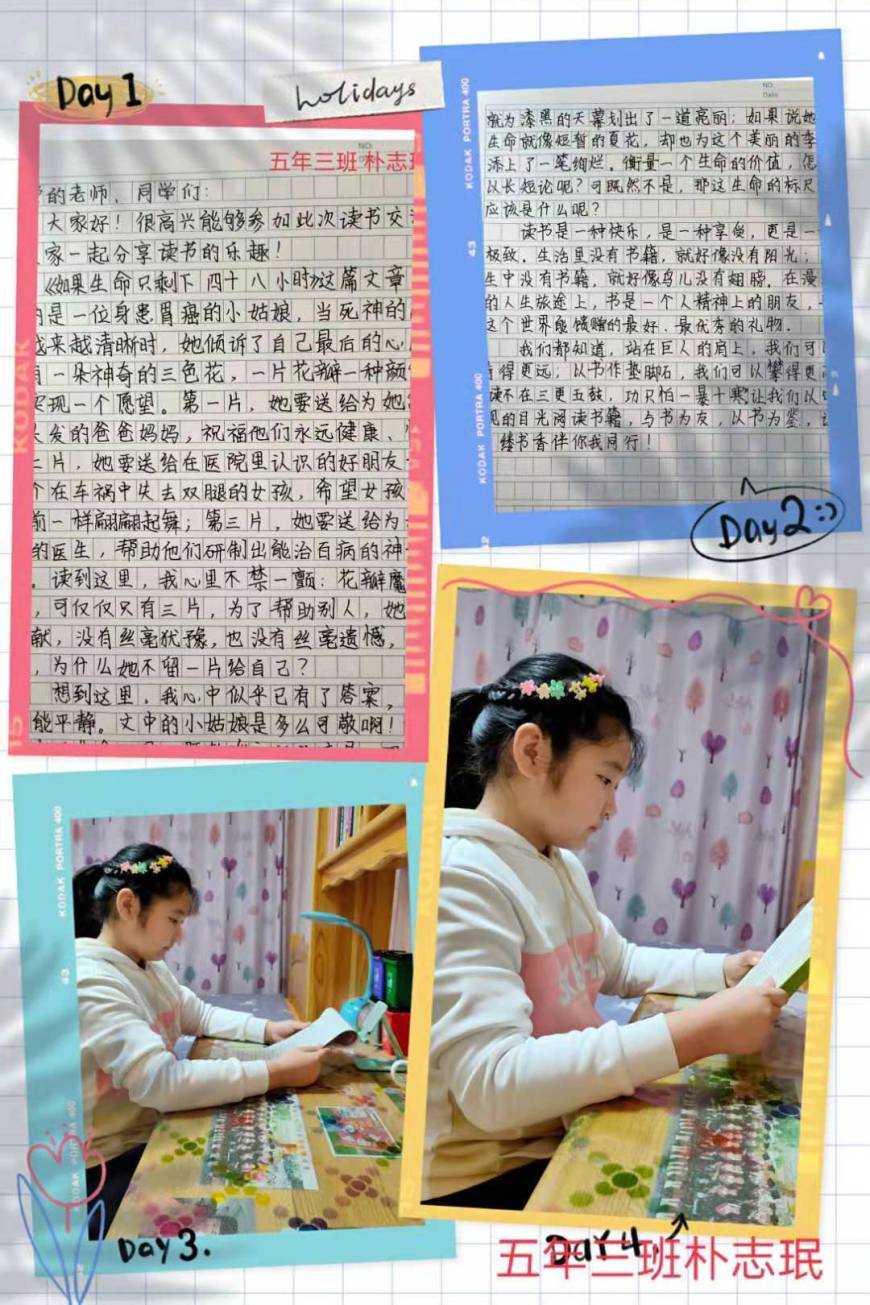 Day 1
holidays
NO.
五年三班 朴志
的老师、同学们:
大家好!很高兴能够参加此次读书交
家一起分享读书的乐趣!
《如果生命只剩下四十八小时》这篇文章
是一位身患胃癌的小姑娘,当死神的
越来越清晰时,她倾诉了自己最后的心
一朵神奇的三色花,一片花瓣一种颜
实现一个愿望。第一片,她要送给为她
发的爸爸妈妈,祝福他们永远健康、
二片,她要送给在医院里认识的好朋友
个在车祸中失去双腿的女孩,希望女孩
前一样翩翩起舞;第三片,她要送给为
的医生,帮助他们研制出能治百病的神
。读到这里,我心里不禁一颤:花瓣魔
,可仅仅只有三片,为了帮助别人,她
献,没有丝毫犹豫,也没有丝毫遗憾,
,为什么她不留一片给自己?
想到这里,我心中似乎已有了答案,
能平静。文中的小姑娘是多么可敬啊!
KODAK
15
KODAK PORTRA 400
43
KODAK PORTRA 400
NO.
Date
就为漆黑的天幕划出了一道亮丽;如果说她
生命就像短暂的夏花,却也为这个美丽的季
添上了一笔绚烂。衡量一个生命的价值,怎
以长短论呢?可既然不是,那这生命的标尺
应该是什么呢?
读书是一种快乐,是一种享受,更是一
极致。生活里没有书籍,就好像没有阳光;
生中没有书籍,就好像鸟儿没有翅膀。在漫
的人生旅途上,书是一个人精神上的朋友,
这个世界能馈赠的最好、最优秀的礼物。
我们都知道,站在巨人的肩上,我们可
得更远;以书作垫脚石,我们可以攀得更
读不在三更五鼓,功只怕一暴十寒让我们以
的目光阅读书籍,与书为友,以书为鉴,
缕书香伴你我同行!
Day2:)
KODAK PORTRA 400
43
Day 3.
DAY 4.
五年三班朴志珉